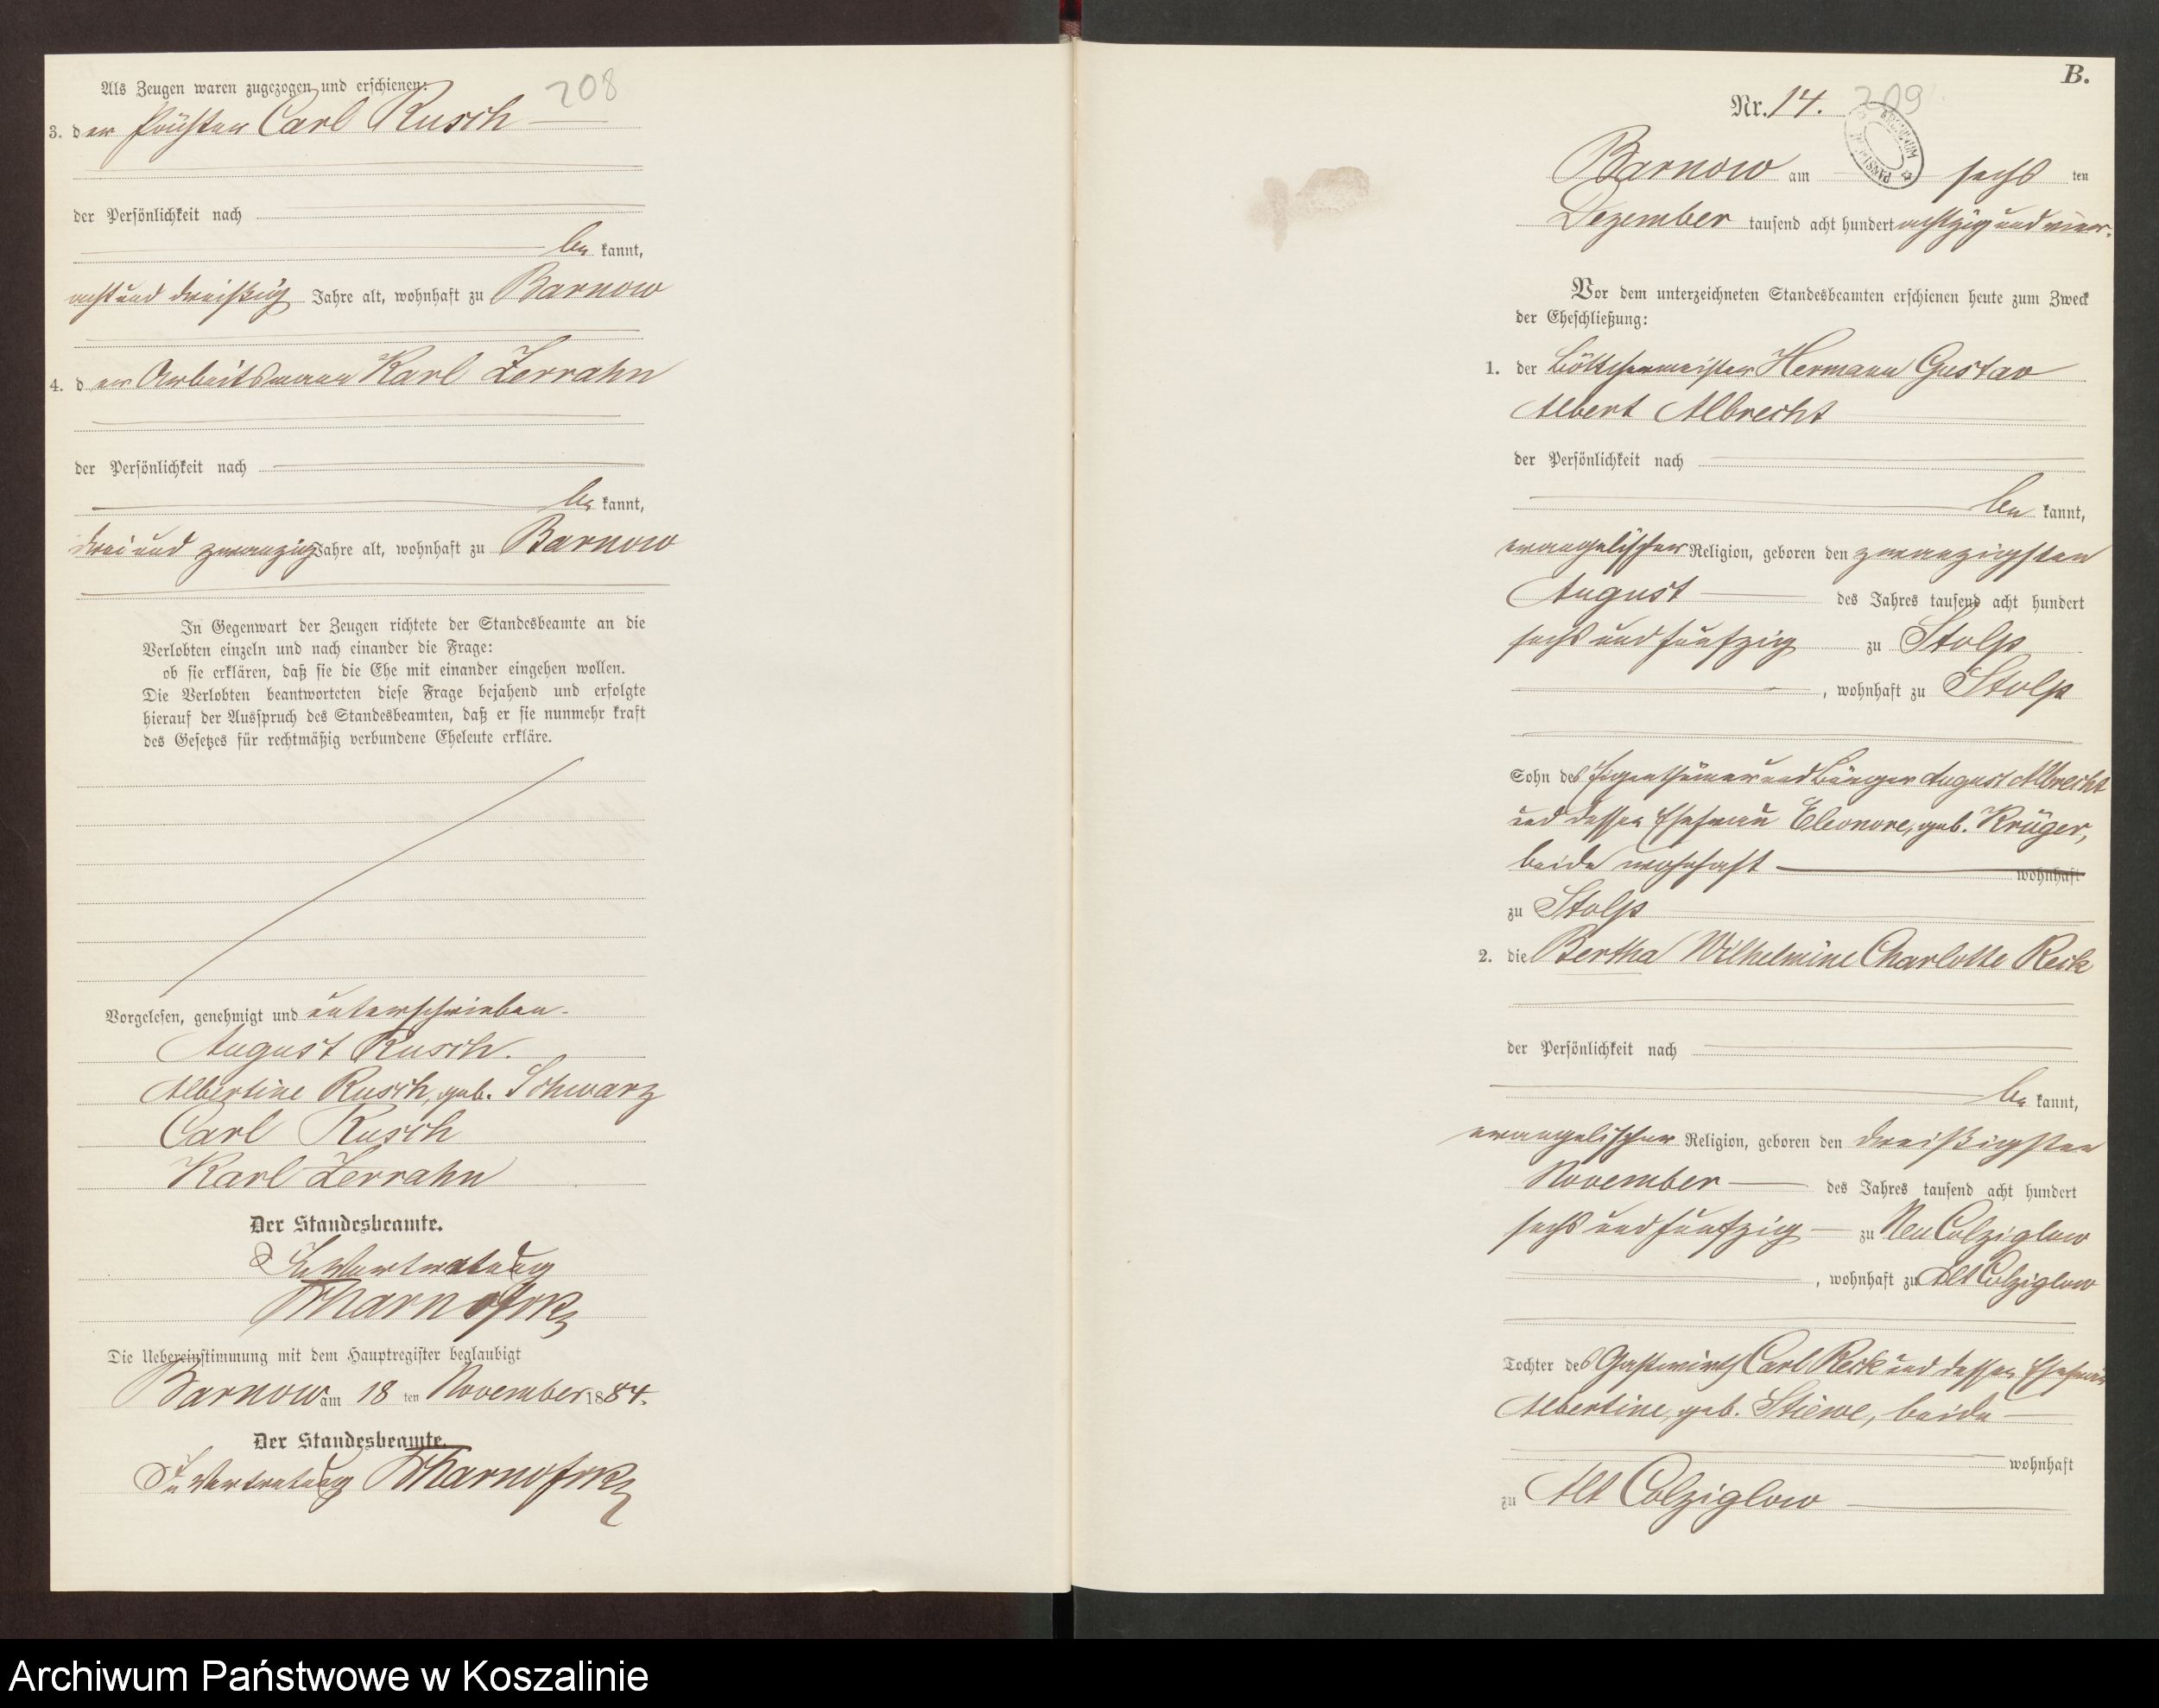 208
Als Zeugen waren zugezogen und erschienen:
3. der Förster Carl Rusch
der Persönlichkeit nach
be kannt,
acht und dreißig Jahre alt, wohnhaft zu Barnow
4. der Arbeitsmann Karl Zerrahn
der Persönlichkeit nach
be kannt,
drei und zwanzig Jahre alt, wohnhaft zu Barnow
In Gegenwart der Zeugen richtete der Standesbeamte an die
Verlobten einzeln und nach einander die Frage:
ob sie erklären, daß sie die Ehe mit einander eingehen wollen.
Die Verlobten beantworteten diese Frage bejahend und erfolgte
hierauf der Ausspruch des Standesbeamten, daß er sie nunmehr kraft
des Gesetzes für rechtmäßig verbundene Eheleute erkläre.
Vorgelesen, genehmigt und unterschrieben.
August Rusch.
Albertine Rusch, geb. Schwarz
Carl Rusch
Karl Zerrahn
Der Standesbeamte.
In Vertretung
Die Uebereinstimmung mit dem Hauptregister beglaubigt
Barnow am 18 ten November 1884.
Der Standesbeamte.
In Vertretung
B.
Nr. 14. 209
Barnow am sechs ten
Dezember tausend acht hundert achtzig und vier.
Vor dem unterzeichneten Standesbeamten erschienen heute zum Zweck
der Eheschließung:
1. der Böttchermeister Hermann Gustav
Albert Albrecht
der Persönlichkeit nach
be kannt,
evangelischer Religion, geboren den zwanzigsten
August des Jahres tausend acht hundert
sechs und fünfzig zu Stolp
, wohnhaft zu Stolp
Sohn des Eigenthümer und Bürger August Albrecht
und dessen Ehefrau Eleonore, geb. Krüger,
beide wohnhaft wohnhaft
zu Stolp
2. die Bertha Wilhelmine Charlotte Reck
der Persönlichkeit nach
be kannt,
evangelischer Religion, geboren den dreißigsten
November des Jahres tausend acht hundert
sechs und fünfzig zu Neu Colziglow
, wohnhaft zu Alt Colziglow
Tochter des Gastwirth Carl Reck und dessen Ehefrau
Albertine, geb. Stiewe, beide
wohnhaft
zu Alt Colziglow
Archiwum Państwowe w Koszalinie